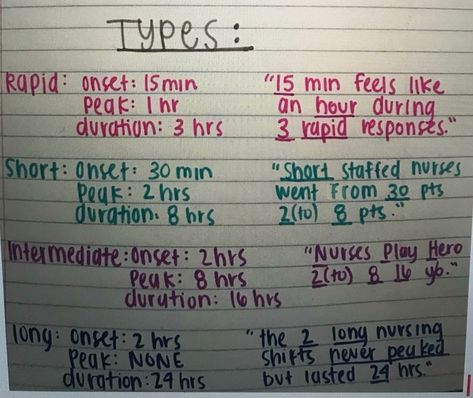 Types:
Rapid: onset: 15 min
peak: 1 hr
duration: 3 hrs
"15 min feels like
an hour during
3 rapid responses."
Short: onset: 30 min
peak: 2 hrs
duration: 8 hrs
"Short staffed nurses
went from 30 pts
2(to) 8 pts."
Intermediate: onset: 2 hrs
peak: 8 hrs
duration: 16 hrs
"Nurses Play Hero
2(to) 8 16 yo."
long: onset: 2 hrs
peak: NONE
duration: 24 hrs
"the 2 long nursing
shifts never peaked
but lasted 24 hrs."